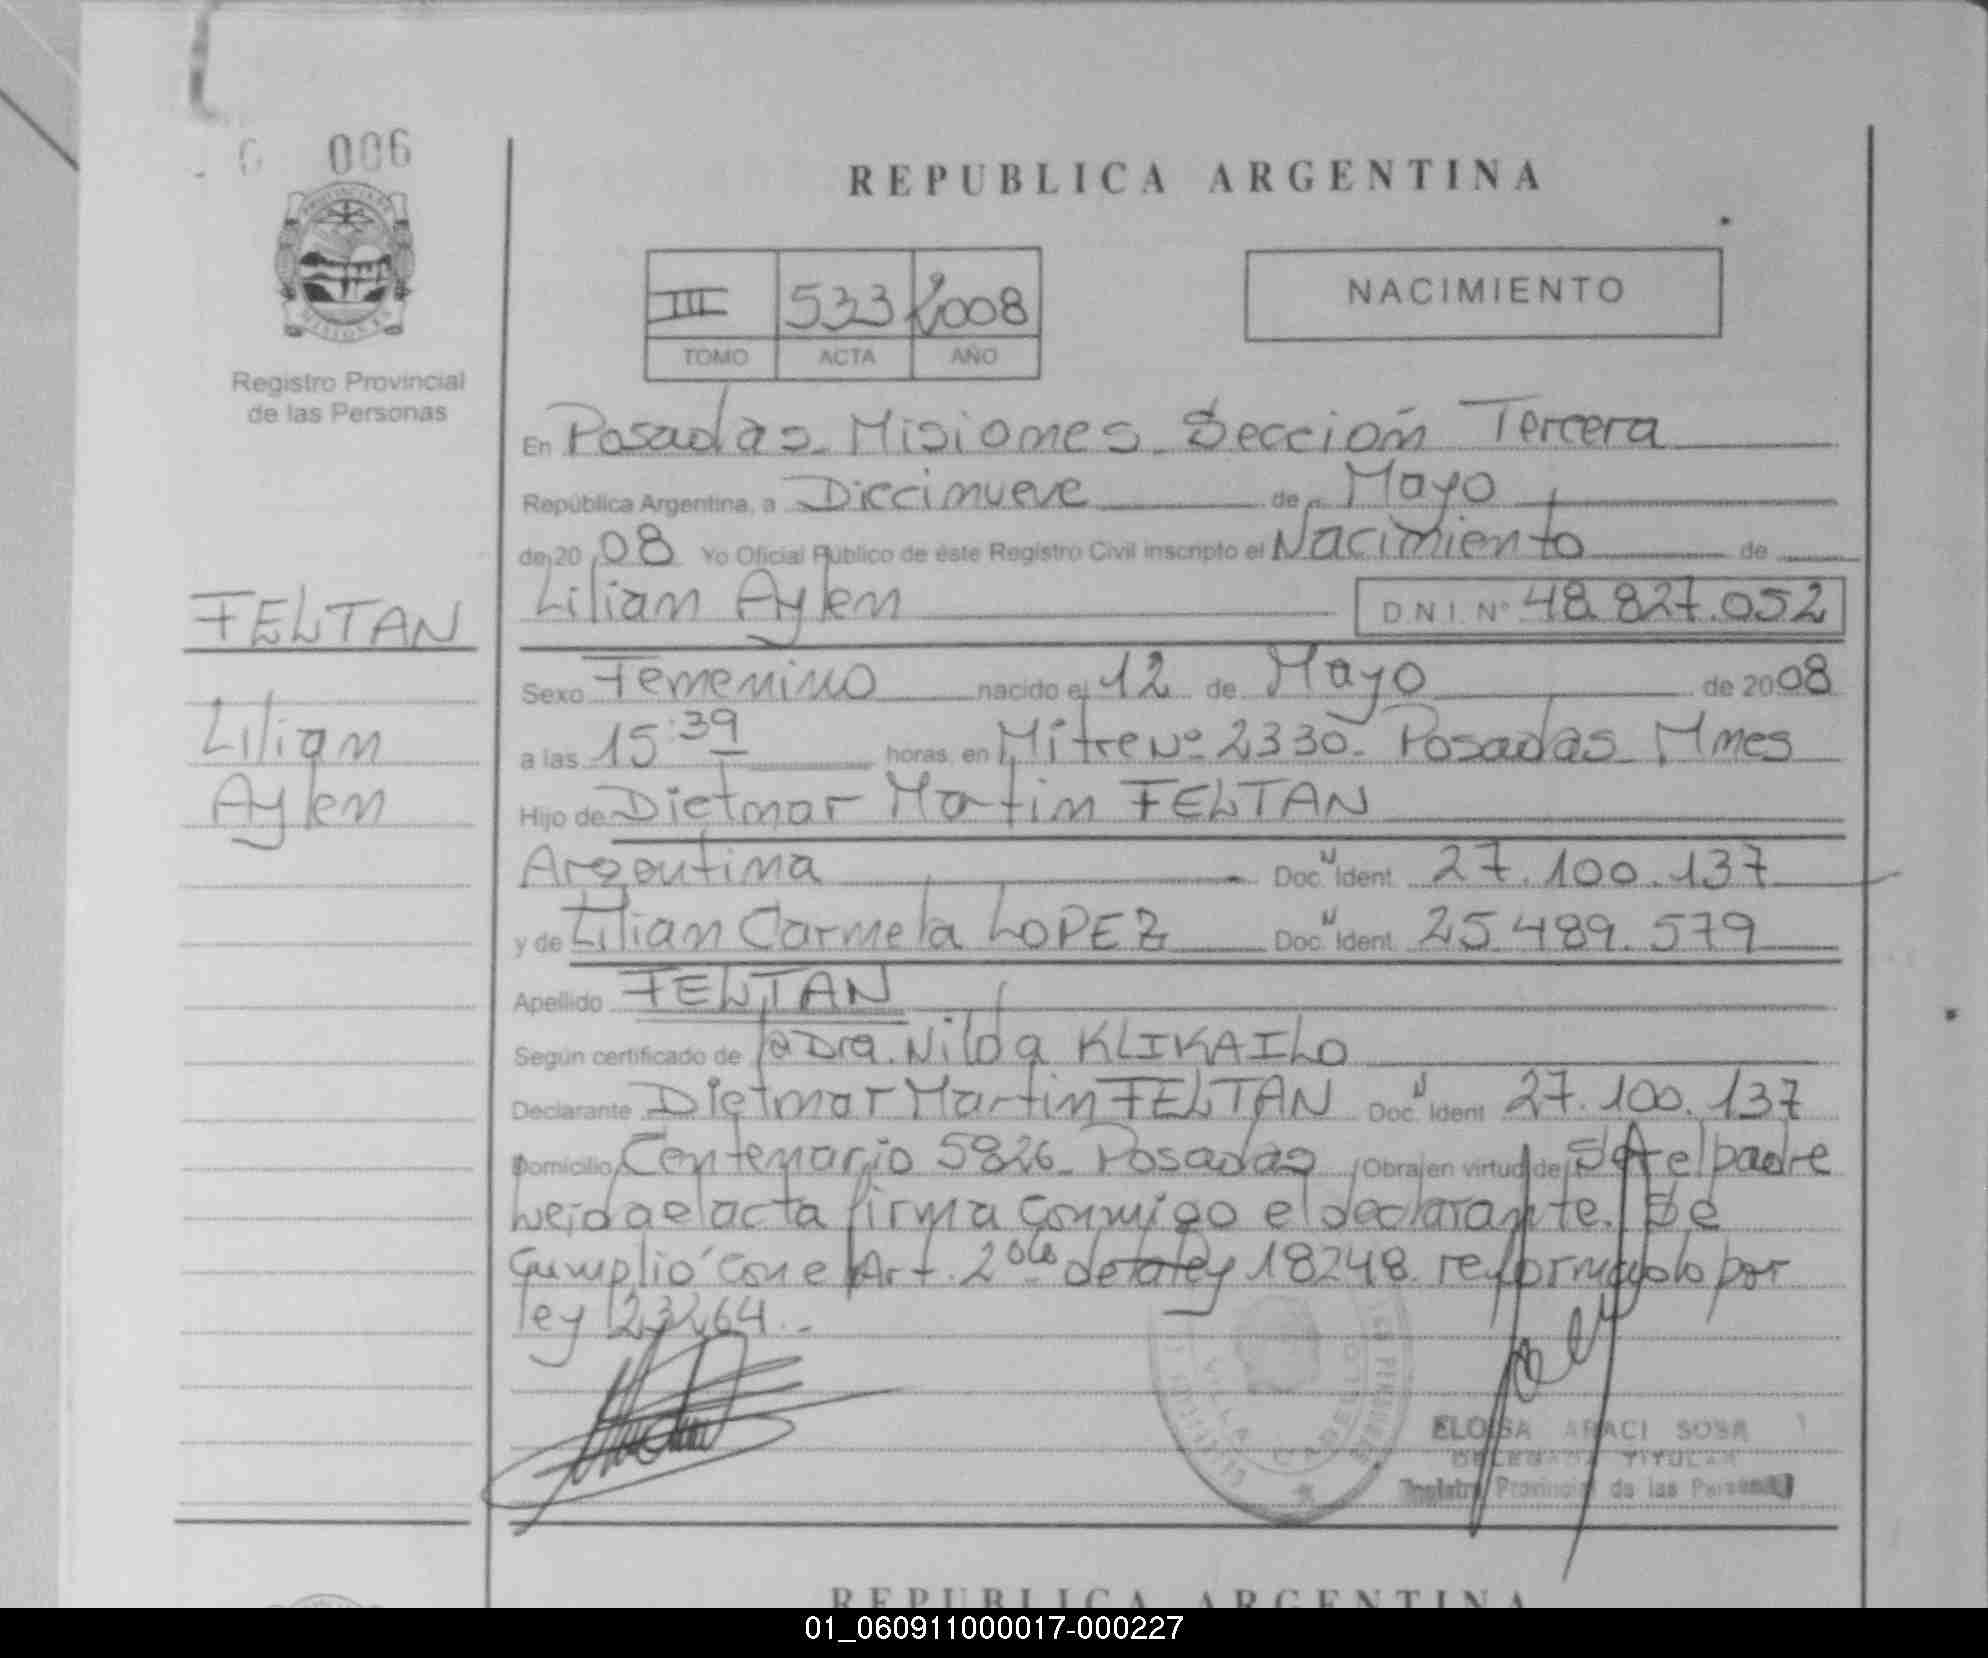 006
REPUBLICA ARGENTINA
III 533 2008
TOMO ACTA AÑO
NACIMIENTO
Registro Provincial
de las Personas
FELTAN
Lilian
Aylen
En Posadas Misiones Sección Tercera
República Argentina, a Diecinueve de Mayo
de 20 08 Yo Oficial Público de éste Registro Civil inscripto el Nacimiento de
Lilian Aylen D.N.I. Nº 48.827.052
Sexo Femenino nacido el 12 de Mayo de 2008
a las 15:39 horas, en Mitre Nº 2330. Posadas Mnes
Hijo de Dietmar Martin FELTAN
Argentina Doc. N Ident. 27.100.137
y de Lilian Carmela LOPEZ Doc. N Ident. 25.489.579
Apellido FELTAN
Según certificado de la Dra. Nilda KLIKAILO
Declarante Dietmar Martin FELTAN Doc. N Ident. 27.100.137
Domicilio Centenario 5826 Posadas Obra en virtud de S/A el padre
Leida el acta firma conmigo el declarante. Se
Cumplió con el Art. 2º de la ley 18248 reformado por
ley 23264.-
VILLA CABELLO
ELOISA ARACI SOSA
DELEGADA TITULAR
Registro Provincial de las Personas
REPUBLICA ARGENTINA
01_060911000017-000227